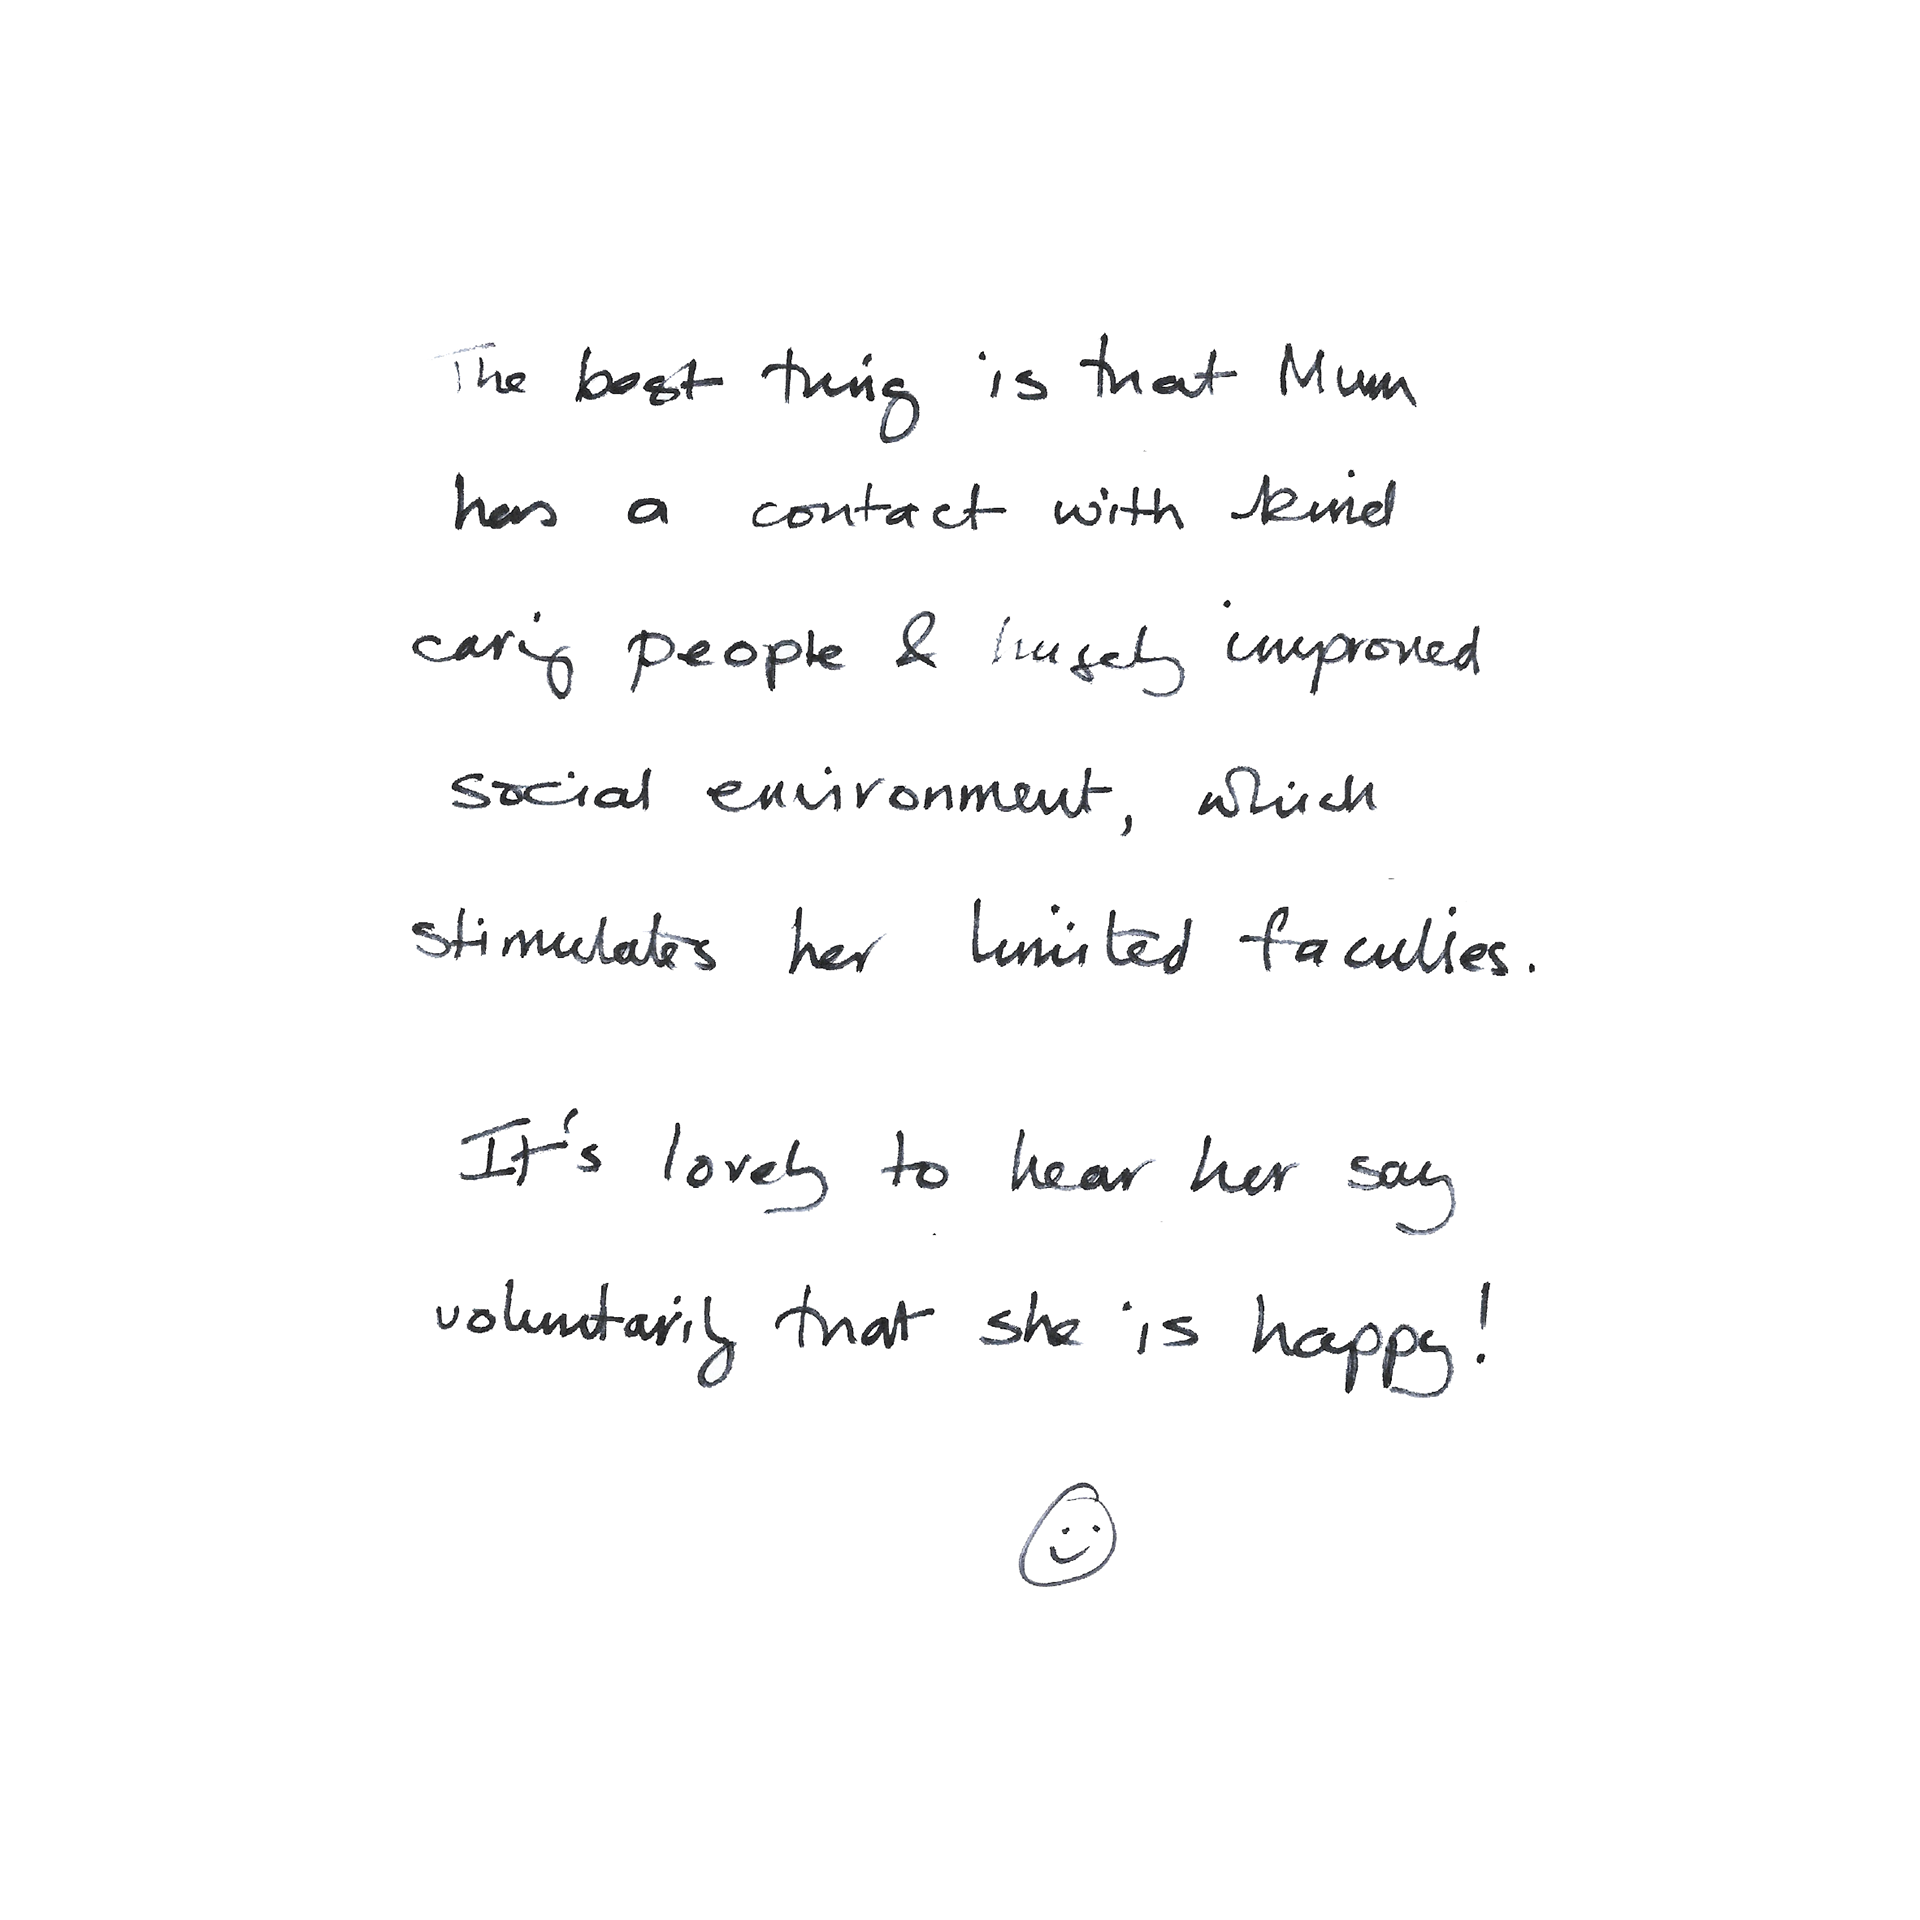 The best thing is that Mum
has a contact with kind
caring people & hugely improved
social environment, which
stimulates her limited faculties.
It's lovely to hear her say
voluntarily that she is happy!